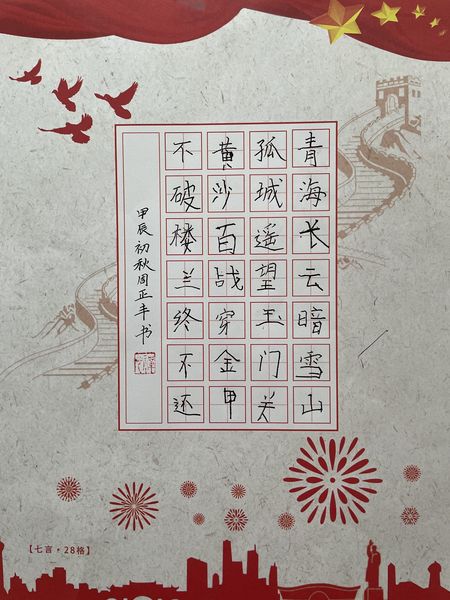 青海长云暗雪山
孤城遥望玉门关
黄沙百战穿金甲
不破楼兰终不还
甲辰初秋周正丰书
【七言·28格】